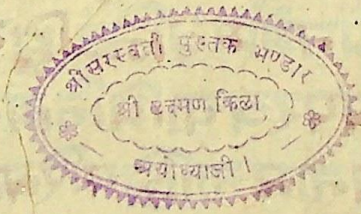 श्रीसरस्वती पुस्तक भण्डार
श्री लक्ष्मण किला
अयोध्याजी ।